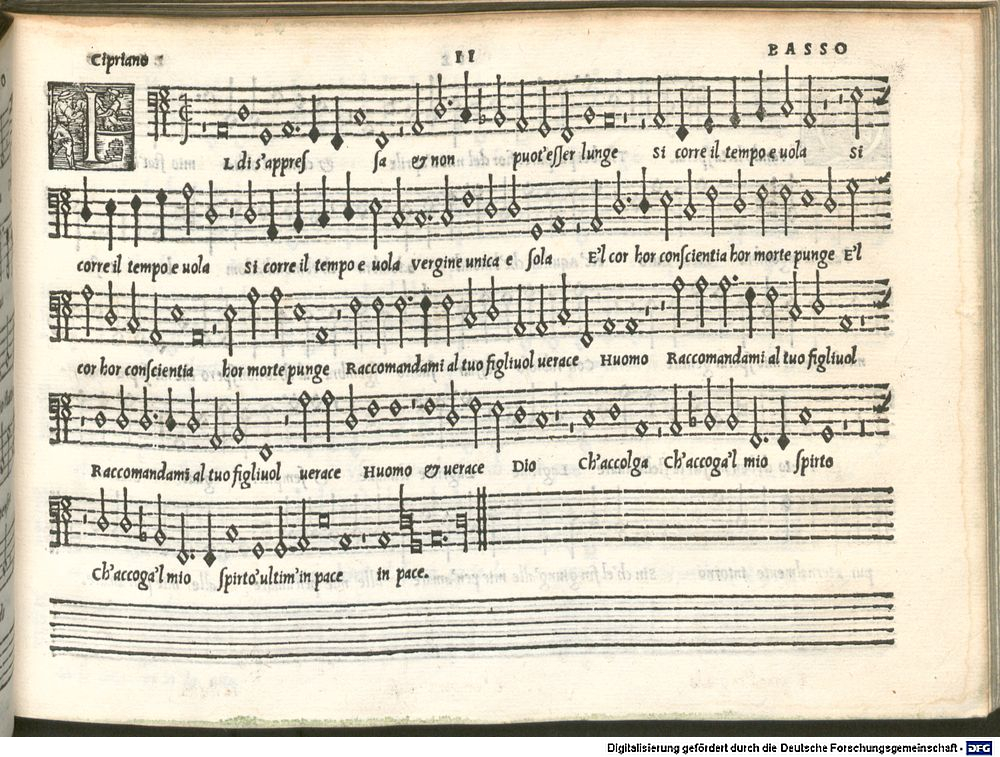 Cipriano
11
BASSO
IL di s'appres sa & non puot'esser lunge Si corre il tempo e uola Si
corre il tempo e uola Si corre il tempo e uola vergine unica e sola E'l cor hor conscientia hor morte punge E'l
cor hor conscientia hor morte punge Raccomandami al tuo figliuol uerace Huomo Raccomandami al tuo figliuol
Raccomandami al tuo figliuol uerace Huomo & uerace Dio Ch'accolga Ch'accoga'l mio spirto
Ch'accoga'l mio spirto'ultim'in pace in pace.
Digitalisierung gefördert durch die Deutsche Forschungsgemeinschaft - DFG